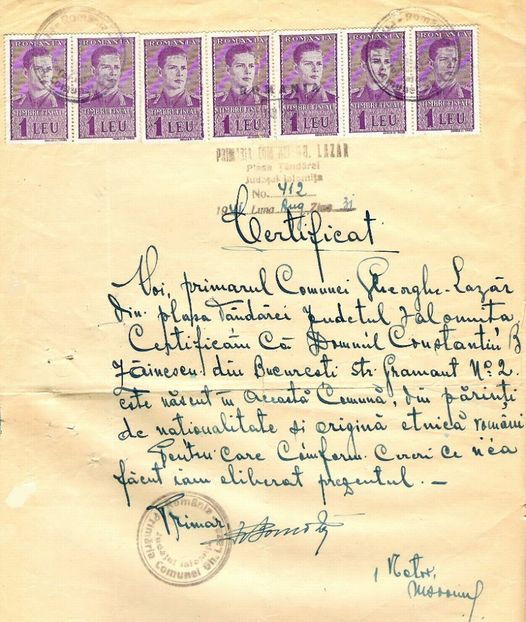 ROMANIA ROMANIA ROMANIA ROMANIA ROMANIA ROMANIA ROMANIA
TIMBRU FISCAL TIMBRU FISCAL TIMBRU FISCAL TIMBRU FISCAL TIMBRU FISCAL TIMBRU FISCAL TIMBRU FISCAL
1 LEU 1 LEU 1 LEU 1 LEU 1 LEU 1 LEU 1 LEU
ROMANIA
PRIMARIA COM. GH. LAZAR
Plasa Țăndărei
Județul Ialomița
No. 412
1941 Luna Aug Ziua 31
Certificat
Noi, primarul Comunei Gheorghe-Lazăr
din plasa Țăndărei Județul Ialomița,
Certificăm Că Domnul Constantin B
Zăinescu din București str. Gramant No 2.
este născut în această Comună, din părinți
de naționalitate și origină etnică români
Pentru care Comform Cererii ce ne'a
făcut iam eliberat prezentul. —
Primar,
România
Județul Ialomița
Primăria Comunei Gh. Lazăr
Notar,